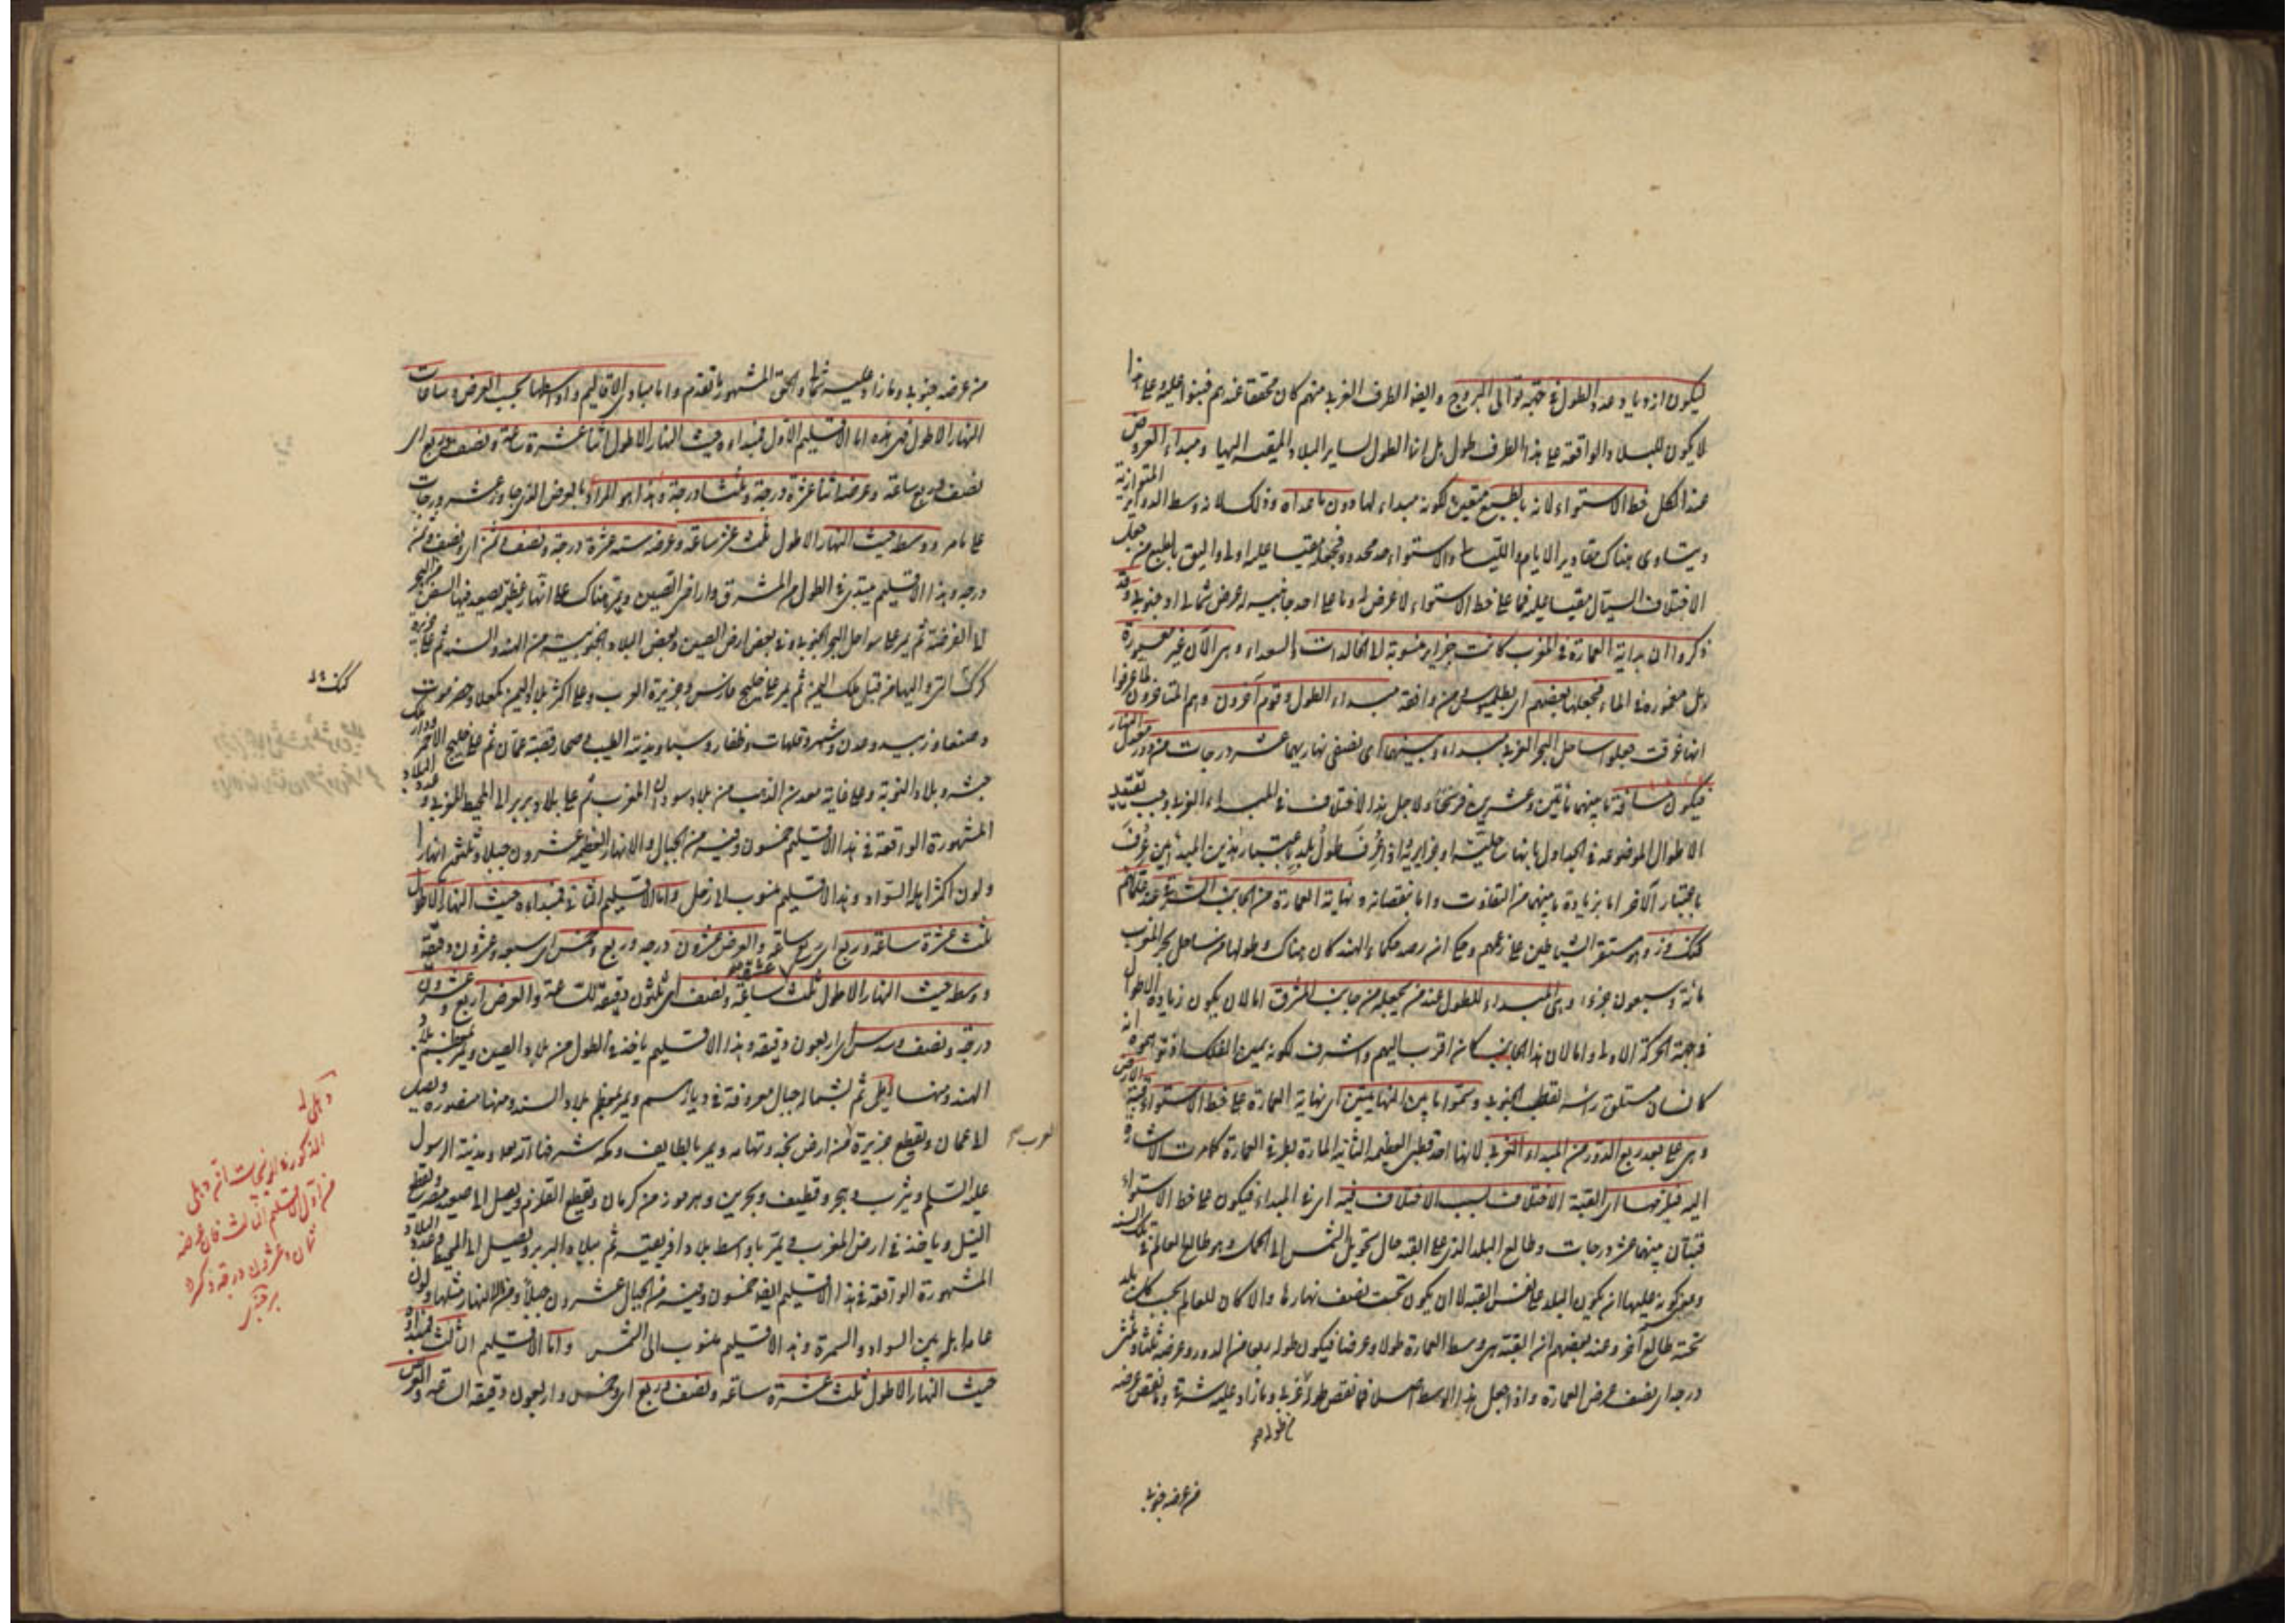 فيكون ازدياد عدد الطول في جهة توالى البروج وايضا الطرف الغربى منهم كان محققا عندهم فبنوا عليه وعلى هذا
لا يكون للبلاد الواقعة على هذا الطرف طول بل انما الطول لساير البلاد المقيسة اليها ومبداء العروض
عند الكل خط الاستواء لانه بالطبع متعين لكونه مبداء لها دون ما عداه وذلك لانه وسط الدواير المتوازية
ويتساوى هناك مقادير الايام والليالى والاستواء حد محدود فجعله مقيسا عليه اولى واليق بالطبع من جعل
الاختلاف السيال مقيسا عليه فما على خط الاستواء لا عرض له وما على احد جانبيه له عرض شمالى او جنوبى وقد
ذكروا ان بداية العمارة في المغرب كانت جزاير منسوبة الى الخالدات السعداء وهى الآن غير معمورة
بل مغمورة في الماء فجعلها بعضهم اى بطلميوس ومن وافقه مبداء الطول وقوم آخرون وهم المتاخرون لما عرفوا
انها غرقت جعلوا ساحل البحر الغربى مبداء وبينهما اى نصفى نهاريهما عشر درجات من دور معدل النهار
فيكون مسافة ما بينهما مأتين وعشرين فرسخا ولاجل هذا الاختلاف في المبداء الغربى وجب تقييد
الاطوال الموضوعة في الجداول بانها ساحلية او جزايرية اذا عُرِفَ طولُ بلد باعتبار هذين المبدئين عُرِفَ
باعتبار الآخر اما بزيادة ما بينهما من التفاوت واما بنقصانه ونهاية العمارة من الجانب الشرقى عند علمائهم
كنك دز وهو مستقر الشياطين على زعمهم وحكى ان رصد حكماء الهند كان هناك وطولها من ساحل بحر المغرب
مائة وسبعون جزءا وهى المبداء للطول عند من يجعله من جانب المشرق اما لان يكون زيادة الاطوال
في جهة الحركة الاولى واما لان هذا الجانب كان اقرب اليهم واشرف لكونه يمين الفلك اذ توهموه انه
كانسان مستلق راسه القطب الجنوبى وسموا ما بين النهايتين اى نهاية العمارة على خط الاستواء قبة الارض
وهى على بعد ربع الدور من المبداء الغربى لانها احد قطبى العظيمة الثانية المارة بطرفى العمارة كما مرت الاشارة
اليه فيلزمها اى القبة الاختلاف بسبب الاختلاف فيه اى في المبداء فيكون على خط الاستواء
قبتان بينهما عشر درجات وطالع البلد الذى على القبة حال تحويل الشمس الى الحمل هو طالع العالم في تلك السنة
ومعنى كونه عليها انه يكون البلد على نفس القبة لا ان يكون تحت نصف نهارها والا كان للعالم بحسب كل بلد
تحته طالع آخر وعند بعضهم ان القبة هى وسط العمارة طولا وعرضا فيكون طوله ربعا من الدور وعرضه ثلثا وثلثين
درجة اى نصف عرض العمارة واذا جعل هذا الوسط اصلا فما نقص طوله غربى وما زاد عليه شرقى وما نقص عرضه
من عرضه جنوبى
من عرضه جنوبى وما زاد عليه شمالى والحق المشهور ما تقدم واما مبادى الاقاليم واوساطها بحسب العرض وساعات
النهار الاطول فهى هذه اما الاقليم الاول فمبداءه حيث النهار الاطول اثنا عشرة ساعة ونصف وربع اى
نصف وربع ساعة وعرضه اثنا عشرة درجة وثلثا درجة وهذا هو المراد بالعرض الذى جاوز عشر درجات
على ما مر ووسطه حيث النهار الاطول ثلث عشرة ساعة وعرضه ستة عشرة درجة ونصف وثمن اى ونصف وثمن
درجة وهذا الاقليم مبتدى في الطول من المشرق واراضى الصين ويمر هناك على انهار عظيمة يصعد فيها السفن من البحر
الى الفرضة ثم يمر على سواحل البحر الجنوبى وفى بعض ارض الصين وبعض البلاد الجنوبية من الهند والسند ثم على جزيرة
كرك التى واليها من قبل ملك اليمن ثم يمر على خليج فارس وجزيرة العرب وعلى اكثر بلاد اليمن كمعلا وحضرموت
وصنعا وزبيد وعدن وشهر وقلهات وظفار وسبا ومدينة الطيب وصحار قصبة عمان ثم على خليج الاحمر ودار ملك
حبشه وبلاد النوبة وعلى غانة معدن الذهب من بلاد سودان المغرب ثم على بلاد بربر الى المحيط الغربى وعدد البلاد
المشهورة الواقعة في هذا الاقليم خمسون وفيه من الجبال والانهار العظيمة عشرون جبلا وثلثون نهرا
ولون اكثر اهله السواد وهذا الاقليم منسوب الى زحل واما الاقليم الثانى فمبداءه حيث النهار الاطول
ثلث عشرة ساعة وربع اى ربع ساعة والعرض عشرون درجة وربع وخمس اى سبعة وعشرون دقيقة
ووسطه حيث النهار الاطول ثلث عشرة ساعة ونصف اى ثلثون دقيقة للساعة والعرض اربع وعشرون
درجة ونصف وسدس اى اربعون دقيقة وهذا الاقليم ياخذ في الطول من بلاد الصين ويمر بمعظم بلاد
الهند ومنها دهلى ثم بشمالى جبال معروفة في ديارهم ويمر بمعظم بلاد السند ومنها منصوره ويصل
الى عمان ويقطع جزيرة العرب من ارض نجد وتهامه ويمر بالطايف ومكه شرفها الله تعالى ومدينة الرسول
عليه السلام ويثرب وهجر وقطيف وبحرين وهرموز من كرمان ويقطع القلزم ويصل الى صعيد مصر ويقطع
النيل وياخذ في ارض المغرب ويمر باوسط بلاد افريقية ثم ببلاد البربر ويصل الى المحيط وعدد البلاد
المشهورة الواقعة في هذا الاقليم ايضا خمسون وفيه من الجبال عشرون جبلا ومن الانهار مثلها ولون
عامة اهله بين السواد والسمرة وهذا الاقليم منسوب الى الشمس واما الاقليم الثالث فمبداءه
حيث النهار الاطول ثلث عشرة ساعة ونصف وربع اى وخمس واربعون دقيقة الساعة والعرض
العرب
دهلى
المذكورة
من اول الاقليم الثالث فان عرضه
ثمان وعشرون درجة ذكره
برجندى